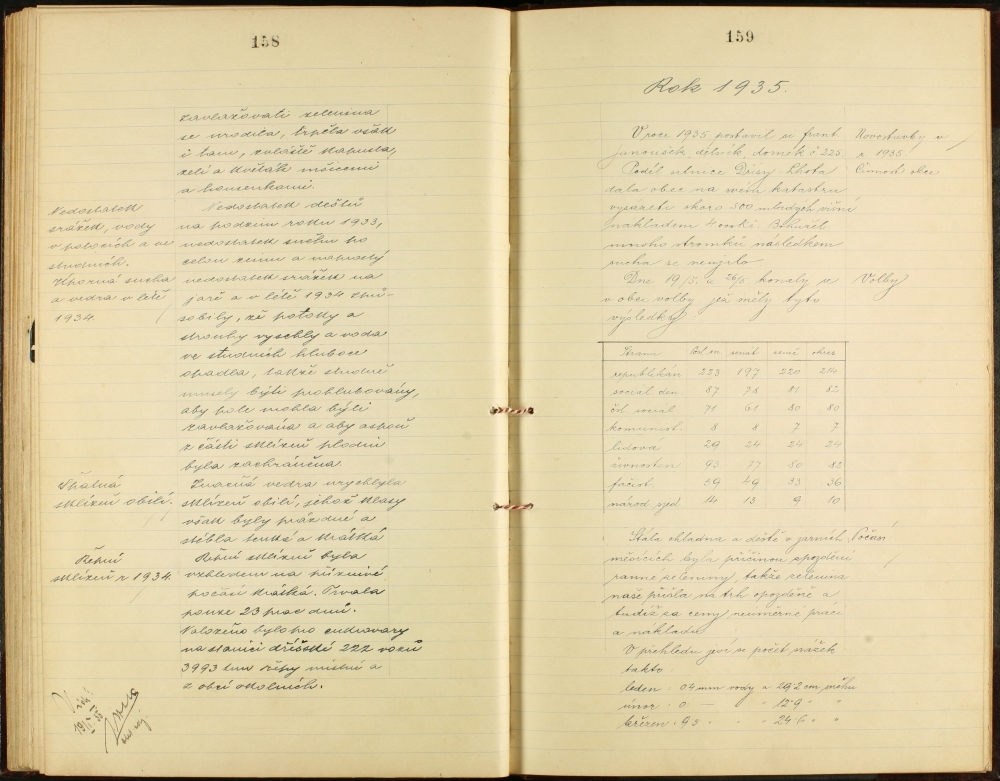 158
zavlažovati zelenina
se urodila, trpěla však
i tam, zvláště kapusta,
zelí a květák mšicemi
a housenkami.
Nedostatek
srážek, vody
v potocích a ve
studních.
Úporná sucha
a vedra v létě
1934.
Nedostatek dešťů
na podzim roku 1933,
nedostatek sněhu po
celou zimu a naprostý
nedostatek srážek na
jaře a v létě 1934 způ-
sobily, že potoky a
strouhy vyschly a voda
ve studních hluboce
opadla, takže studně
musely býti prohlubovány,
aby pole mohla býti
zavlažována a aby aspoň
z části sklizeň plodin
byla zachráněna.
Špatná
sklizeň obilí.
Značná vedra urychlila
sklizeň obilí, jehož klasy
však byly prázdné a
stébla tenká a krátká
Řepní
sklizeň r 1934.
Řepní sklizeň byla
vzhledem na příznivé
počasí krátká. Trvala
pouze 23 prac dnů.
Naloženo bylo pro cukrovary
na stanici dříšské 222 vozů
3993 tun řepy místní a
z obcí okolních.
159
Rok 1935.
V roce 1935 postavil si Frant
Janoušek, dělník, domek č 225.
Novostavby v
r 1935.
Podél silnice Dřísy - Lhota
Činnost obce
dala obec na svém katastru
vysázeti skoro 500 mladých višní
nákladem 4 000 Kč. Bohužel
mnoho stromků následkem
sucha se neujalo.
Dne 19/5. a 26/5 konaly se
Volby
v obci volby jež měly tyto
výsledky
Strana posl. sn senát země okres
republikán 223 197 220 204
sociál dem 87 78 81 82
čsl social 71 61 80 80
komunist. 8 8 7 7
lidová 29 24 24 24
živnosten 93 77 80 82
fašist 59 49 33 36
národ sjed 14 13 9 10
Stálá chladna a deště v jarních
Počasí
měsících byla příčinou zpoždění
ranné zeleniny, takže zelenina
naše přišla na trh opožděně a
tudíž za ceny neúměrné práci
a nákladu
V přehledu jeví se počet srážek
takto:
leden : 04 mm vody a 29·2 cm sněhu
únor : 0 — " " 12·9 " "
březen : 93 " " 24·6 " "